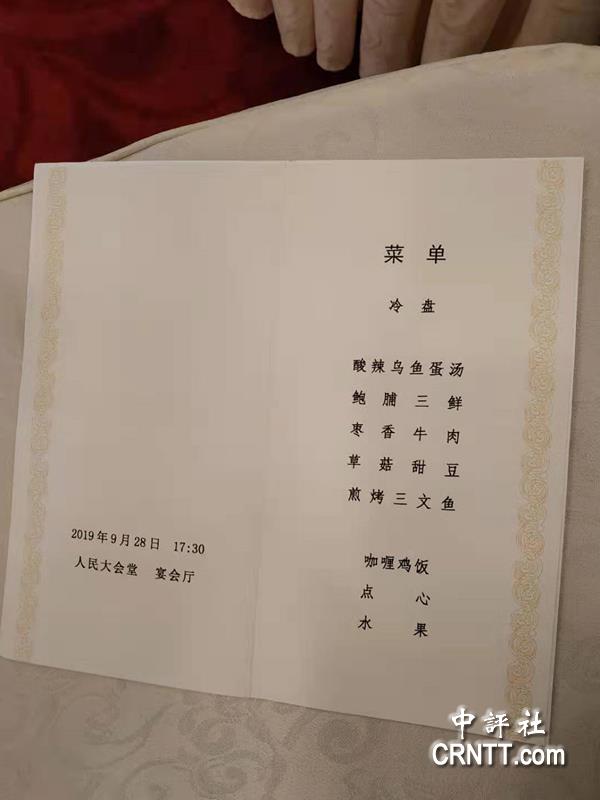 2019年9月28日 17:30
人民大会堂 宴会厅
菜单
冷盘
酸辣乌鱼蛋汤
鲍脯三鲜
枣香牛肉
草菇甜豆
煎烤三文鱼
咖喱鸡饭
点心
水果
中評社
CRNTT.com